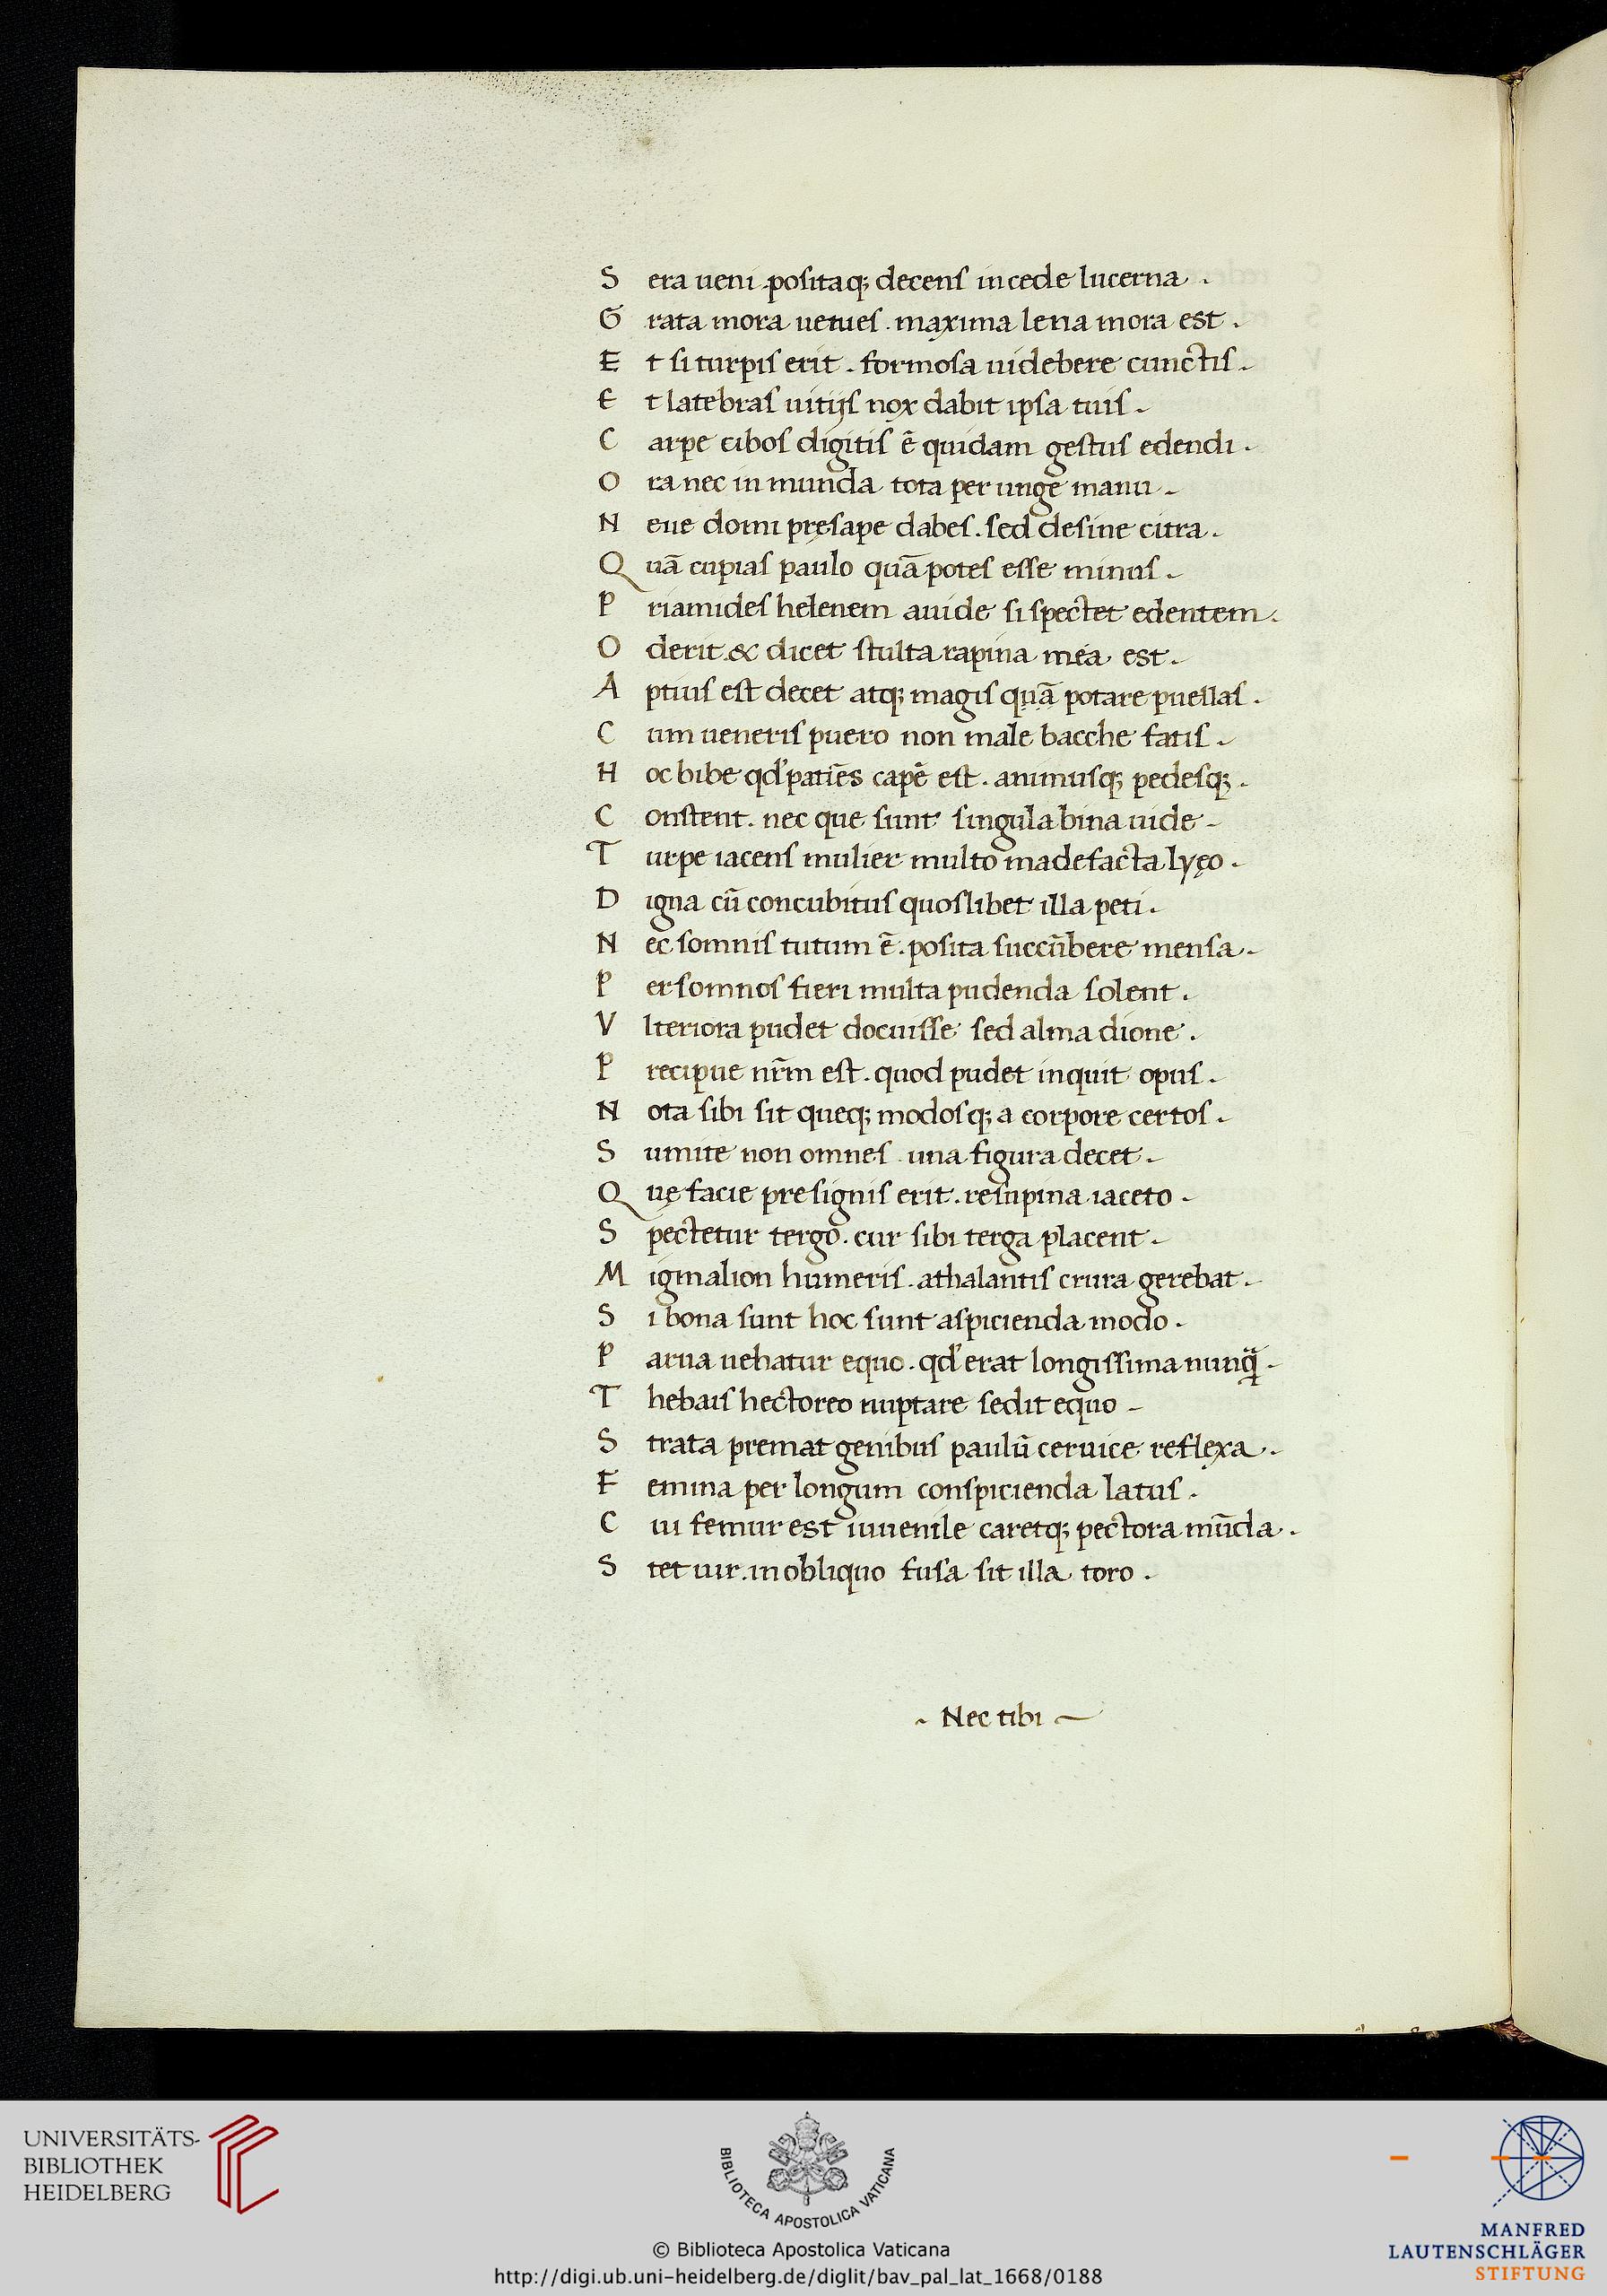 S era ueni positaq; decens in cede lucerna .
G rata mora uenies . maxima lena mora est .
E t si turpis erit . formosa uidebere cunctis .
E t latebras uitijs nox dabit ipsa tuis .
C arpe cibos digitis ē quidam gestus edendi .
O ra nec in munda tota per unge manu .
N eue domi pręsape dabes . sed desine citra .
Q uā cupias paulo quā potes esse minus .
P riamides helenem auide si spectet edentem .
O derit & dicet stulta rapina mea est .
A ptius est decet atq; magis quā potare puellas .
C um ueneris puero non male bacche fatis .
H oc bibe qd' patiēs capē est . animusq; pedesq; .
C onstent . nec que sunt singula bina uide .
T urpe iacens mulier multo madefacta lyęo .
D igna cū concubitus quoslibet illa peti .
N ec somnis tutum ē . posita succūbere mensa .
P er somnos fieri multa pudenda solent .
V lteriora pudet docuisse sed alma dione .
P recipue nr̄m est . quod pudet inquit opus .
N ota sibi sit queq; modosq; a corpore certos .
S umite non omnes . una figura decet .
Q uę facie presignis erit . resupina iaceto .
S pectetur tergo . cur sibi terga placent .
M igmalion humeris . athalantis crura gerebat .
S i bona sunt hoc sunt aspicienda modo .
P arua uehatur equo . qd' erat longissima nunq̄ .
T hebais hectoreo nuptare sedit equo .
S trata premat genibus paulū ceruice reflexa .
F emina per longum conspicienda latus .
C ui femur est iuuenile caretq; pectora mūda .
S tet uir . in obliquo fusa sit illa toro .
. Nec tibi
UNIVERSITÄTS-
BIBLIOTHEK
HEIDELBERG
BIBLIOTECA APOSTOLICA VATICANA
© Biblioteca Apostolica Vaticana
http://digi.ub.uni-heidelberg.de/diglit/bav_pal_lat_1668/0188
MANFRED
LAUTENSCHLÄGER
STIFTUNG